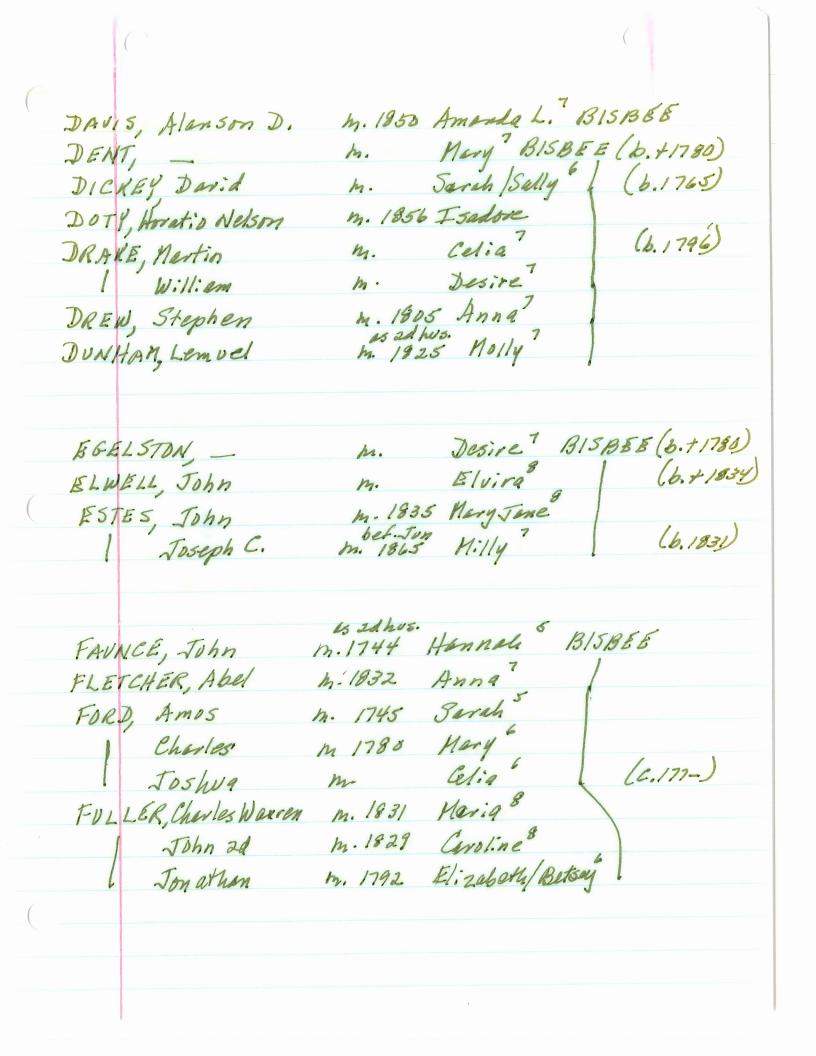 DAVIS, Alanson D. m. 1850 Amanda L.⁷ BISBEE
DENT, — m. Mary⁷ BISBEE (b.+1780)
DICKEY, David m. Sarah/Sally⁶ (b.1765)
DOTY, Horatio Nelson m. 1856 Isadore
DRAKE, Martin m. Celia⁷ (b.1796)
William m. Desire⁷
DREW, Stephen m. 1805 Anna⁷
as 2d hus.
DUNHAM, Lemuel m. 1825 Molly⁷
EGELSTON, — m. Desire⁷ BISBEE (b.+1780)
ELWELL, John m. Elvira⁸ (b.+1834)
ESTES, John m. 1835 Mary Jane⁸
bef. Jun
Joseph C. m. 1865 Milly⁷ (b.1831)
as 2d hus.
FAUNCE, John m. 1744 Hannah⁵ BISBEE
FLETCHER, Abel m. 1832 Anna⁷
FORD, Amos m. 1745 Sarah⁵
Charles m 1780 Mary⁶
Joshua m Celia⁶ (c.177-)
FULLER, Charles Warren m. 1831 Maria⁸
John 2d m. 1829 Caroline⁸
Jonathan m. 1792 Elizabeth/Betsey⁶